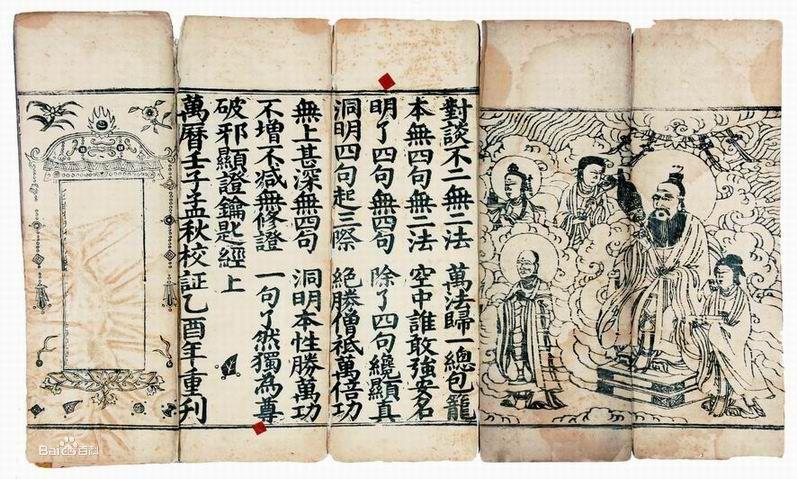 對談不二無二法 萬法歸一總包籠
本無四句無二法 空中誰敢強安名
明了四句無四句 除了四句纔顯真
洞明四句起三際 絕勝僧祇萬倍功
無上甚深無四句 洞明本性勝萬功
不增不減無修證 一句了然獨為尊
破邪顯證鑰匙經上
萬曆壬子孟秋校証乙酉年重刊
Bai百科